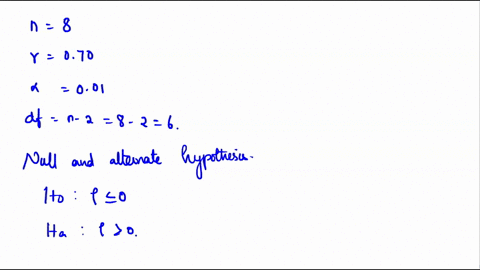 n = 8
r = 0.70
α = 0.01
df = n - 2 = 8 - 2 = 6.
Null and alternate hypothesis.
H0 : ρ ≤ 0
Ha : ρ > 0.